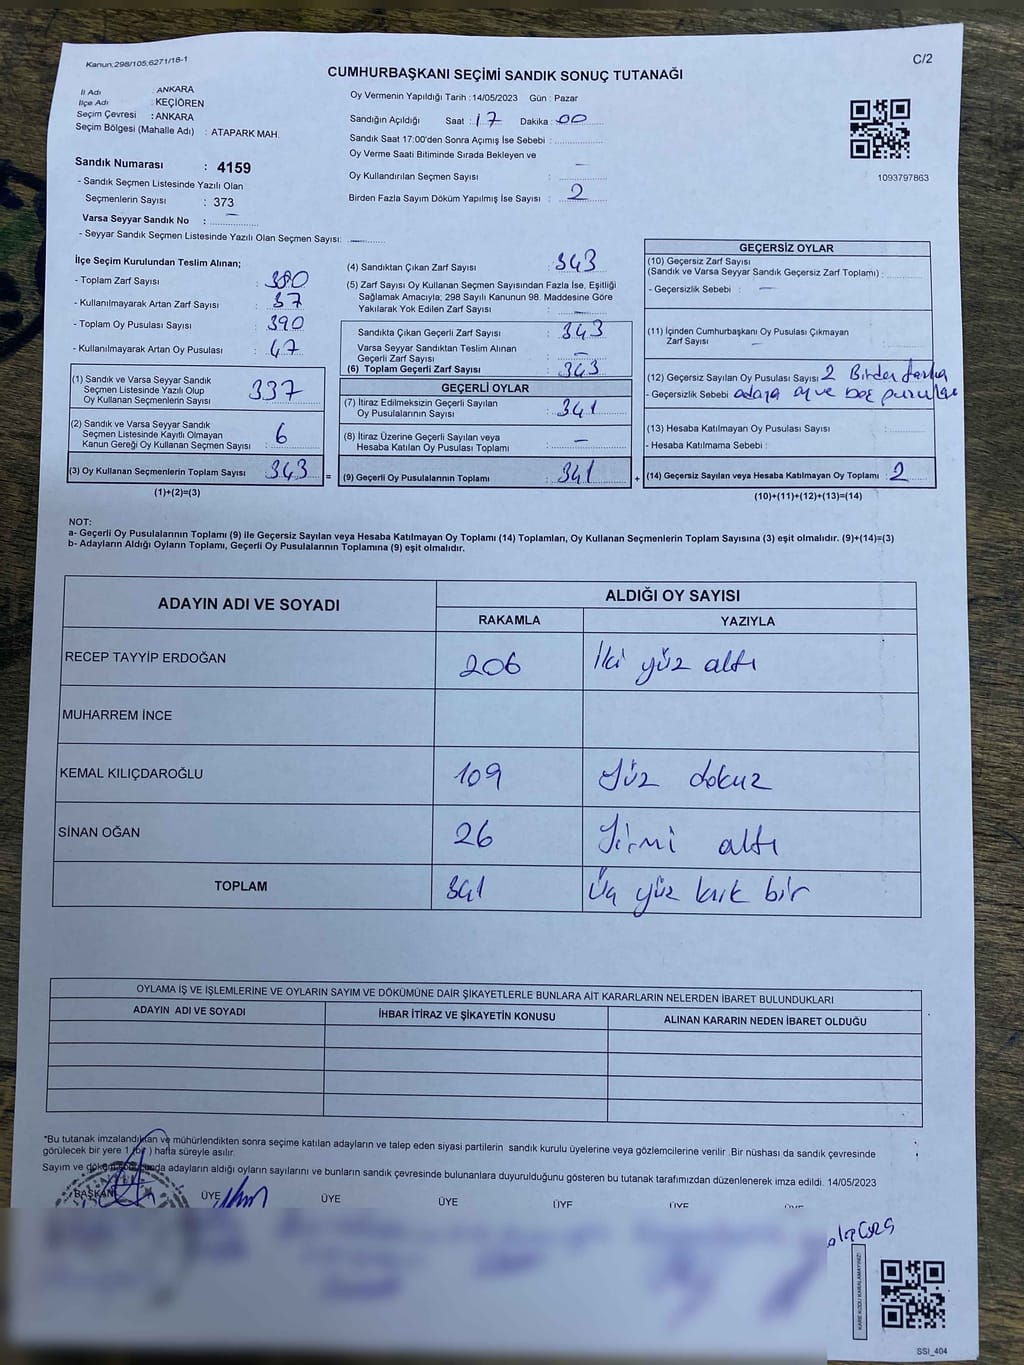 Kanun:298/105;6271/18-1
C/2
CUMHURBAŞKANI SEÇİMİ SANDIK SONUÇ TUTANAĞI
İl Adı : ANKARA
İlçe Adı : KEÇİÖREN
Seçim Çevresi : ANKARA
Seçim Bölgesi (Mahalle Adı) : ATAPARK MAH.
Sandık Numarası : 4159
- Sandık Seçmen Listesinde Yazılı Olan
Seçmenlerin Sayısı : 373
Varsa Seyyar Sandık No : –
- Seyyar Sandık Seçmen Listesinde Yazılı Olan Seçmen Sayısı: –
Oy Vermenin Yapıldığı Tarih : 14/05/2023 Gün : Pazar
Sandığın Açıldığı Saat : 17 Dakika : 00
Sandık Saat 17:00'den Sonra Açımış İse Sebebi :
Oy Verme Saati Bitiminde Sırada Bekleyen ve
Oy Kullandırılan Seçmen Sayısı : –
Birden Fazla Sayım Döküm Yapılmış İse Sayısı : 2
1093797863
İlçe Seçim Kurulundan Teslim Alınan;
- Toplam Zarf Sayısı : 380
- Kullanılmayarak Artan Zarf Sayısı : 37
- Toplam Oy Pusulası Sayısı : 390
- Kullanılmayarak Artan Oy Pusulası : 47
(1) Sandık ve Varsa Seyyar Sandık
Seçmen Listesinde Yazılı Olup
Oy Kullanan Seçmenlerin Sayısı : 337
(2) Sandık ve Varsa Seyyar Sandık
Seçmen Listesinde Kayıtlı Olmayan
Kanun Gereği Oy Kullanan Seçmen Sayısı : 6
(3) Oy Kullanan Seçmenlerin Toplam Sayısı : 343
(1)+(2)=(3)
=
(4) Sandıktan Çıkan Zarf Sayısı : 343
(5) Zarf Sayısı Oy Kullanan Seçmen Sayısından Fazla İse, Eşitliği
Sağlamak Amacıyla; 298 Sayılı Kanunun 98. Maddesine Göre
Yakılarak Yok Edilen Zarf Sayısı : –
Sandıkta Çıkan Geçerli Zarf Sayısı : 343
Varsa Seyyar Sandıktan Teslim Alınan
Geçerli Zarf Sayısı : –
(6) Toplam Geçerli Zarf Sayısı : 343
GEÇERLİ OYLAR
(7) İtiraz Edilmeksizin Geçerli Sayılan
Oy Pusulalarının Sayısı : 341
(8) İtiraz Üzerine Geçerli Sayılan veya
Hesaba Katılan Oy Pusulası Toplamı : –
(9) Geçerli Oy Pusulalarının Toplamı : 341
+
GEÇERSİZ OYLAR
(10) Geçersiz Zarf Sayısı
(Sandık ve Varsa Seyyar Sandık Geçersiz Zarf Toplamı) :
- Geçersizlik Sebebi : –
(11) İçinden Cumhurbaşkanı Oy Pusulası Çıkmayan
Zarf Sayısı : –
(12) Geçersiz Sayılan Oy Pusulası Sayısı : 2 Birden fazla
- Geçersizlik Sebebi : adaya oy ve boş pusula
(13) Hesaba Katılmayan Oy Pusulası Sayısı :
- Hesaba Katılmama Sebebi :
(14) Geçersiz Sayılan veya Hesaba Katılmayan Oy Toplamı : 2
(10)+(11)+(12)+(13)=(14)
NOT:
a- Geçerli Oy Pusulalarının Toplamı (9) ile Geçersiz Sayılan veya Hesaba Katılmayan Oy Toplamı (14) Toplamları, Oy Kullanan Seçmenlerin Toplam Sayısına (3) eşit olmalıdır. (9)+(14)=(3)
b- Adayların Aldığı Oyların Toplamı, Geçerli Oy Pusulalarının Toplamına (9) eşit olmalıdır.
ADAYIN ADI VE SOYADI ALDIĞI OY SAYISI
RAKAMLA YAZIYLA
RECEP TAYYİP ERDOĞAN 206 İki yüz altı
MUHARREM İNCE
KEMAL KILIÇDAROĞLU 109 Yüz dokuz
SİNAN OĞAN 26 Yirmi altı
TOPLAM 341 Üç yüz kırk bir
OYLAMA İŞ VE İŞLEMLERİNE VE OYLARIN SAYIM VE DÖKÜMÜNE DAİR ŞİKAYETLERLE BUNLARA AİT KARARLARIN NELERDEN İBARET BULUNDUKLARI
ADAYIN ADI VE SOYADI İHBAR İTİRAZ VE ŞİKAYETİN KONUSU ALINAN KARARIN NEDEN İBARET OLDUĞU
*Bu tutanak imzalandıktan ve mühürlendikten sonra seçime katılan adayların ve talep eden siyasi partilerin sandık kurulu üyelerine veya gözlemcilerine verilir .Bir nüshası da sandık çevresinde
görülecek bir yere 1 (bir ) hafta süreyle asılır.
Sayım ve döküm sonunda adayların aldığı oyların sayılarını ve bunların sandık çevresinde bulunanlara duyurulduğunu gösteren bu tutanak tarafımızdan düzenlenerek imza edildi. 14/05/2023
BAŞKAN ÜYE ÜYE ÜYE ÜYE ÜYE ÜYE
KARE KODU KARALAMAYINIZ!
SSI_404